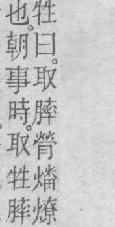 牲曰。取膟膋燔燎
也。朝事時。取牲膟